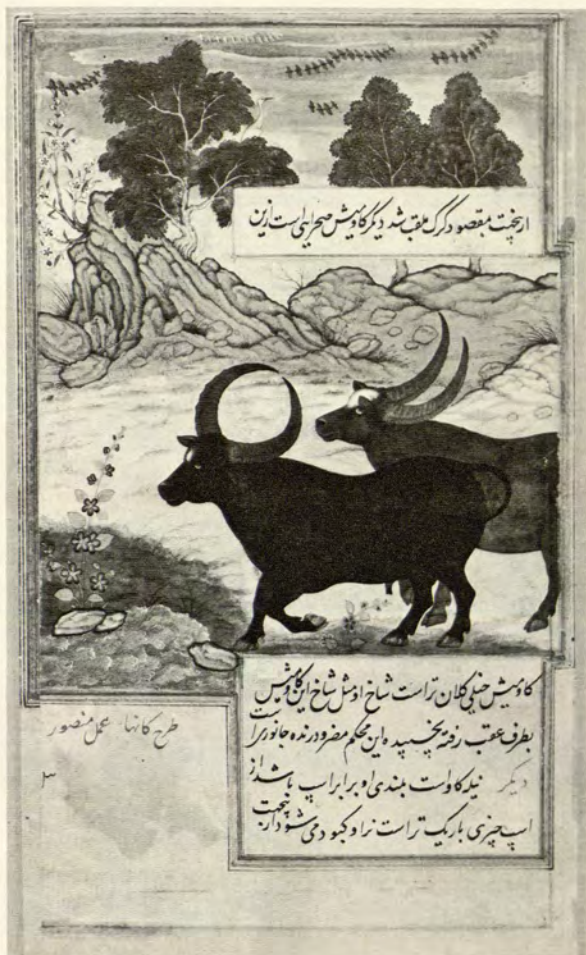 ازینجهت بمقصود کرک ملقب شد دیگر گاومیش صحرایی است ازین
گاومیش خیلی کلان تر است شاخ او مثل شاخ این گاومیش
بطرف عقب رفته نچسپیده این محکم مضر و درنده جانوری است
دیگر نیله گاو است بلندی او برابر اسپ باشد از
اسپ چیزی باریک تر است نر او کبود می شود ازینجهت
طرح کانها عمل منصور